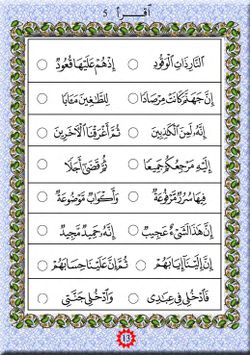 اقرأ 5
النَّارِ ذَاتِ الْوَقُودِ ○ إِذْ هُمْ عَلَيْهَا قُعُودٌ ○
إِنَّ جَهَنَّمَ كَانَتْ مِرْصَادًا ○ لِلطَّاغِينَ مَآبًا ○
إِنَّهُ لَمِنَ الْكَاذِبِينَ ○ ثُمَّ أَغْرَقْنَا الْآخَرِينَ ○
إِلَيْهِ مَرْجِعُكُمْ جَمِيعًا ○ ثُمَّ قَضَى أَجَلًا ○
فِيهَا سُرُرٌ مَرْفُوعَةٌ ○ وَأَكْوَابٌ مَوْضُوعَةٌ ○
إِنَّ هَذَا لَشَيْءٌ عَجِيبٌ ○ إِنَّهُ حَمِيدٌ مَجِيدٌ ○
إِنَّ إِلَيْنَا إِيَابَهُمْ ○ ثُمَّ إِنَّ عَلَيْنَا حِسَابَهُمْ ○
فَادْخُلِي فِي عِبَادِي ○ وَادْخُلِي جَنَّتِي ○
13